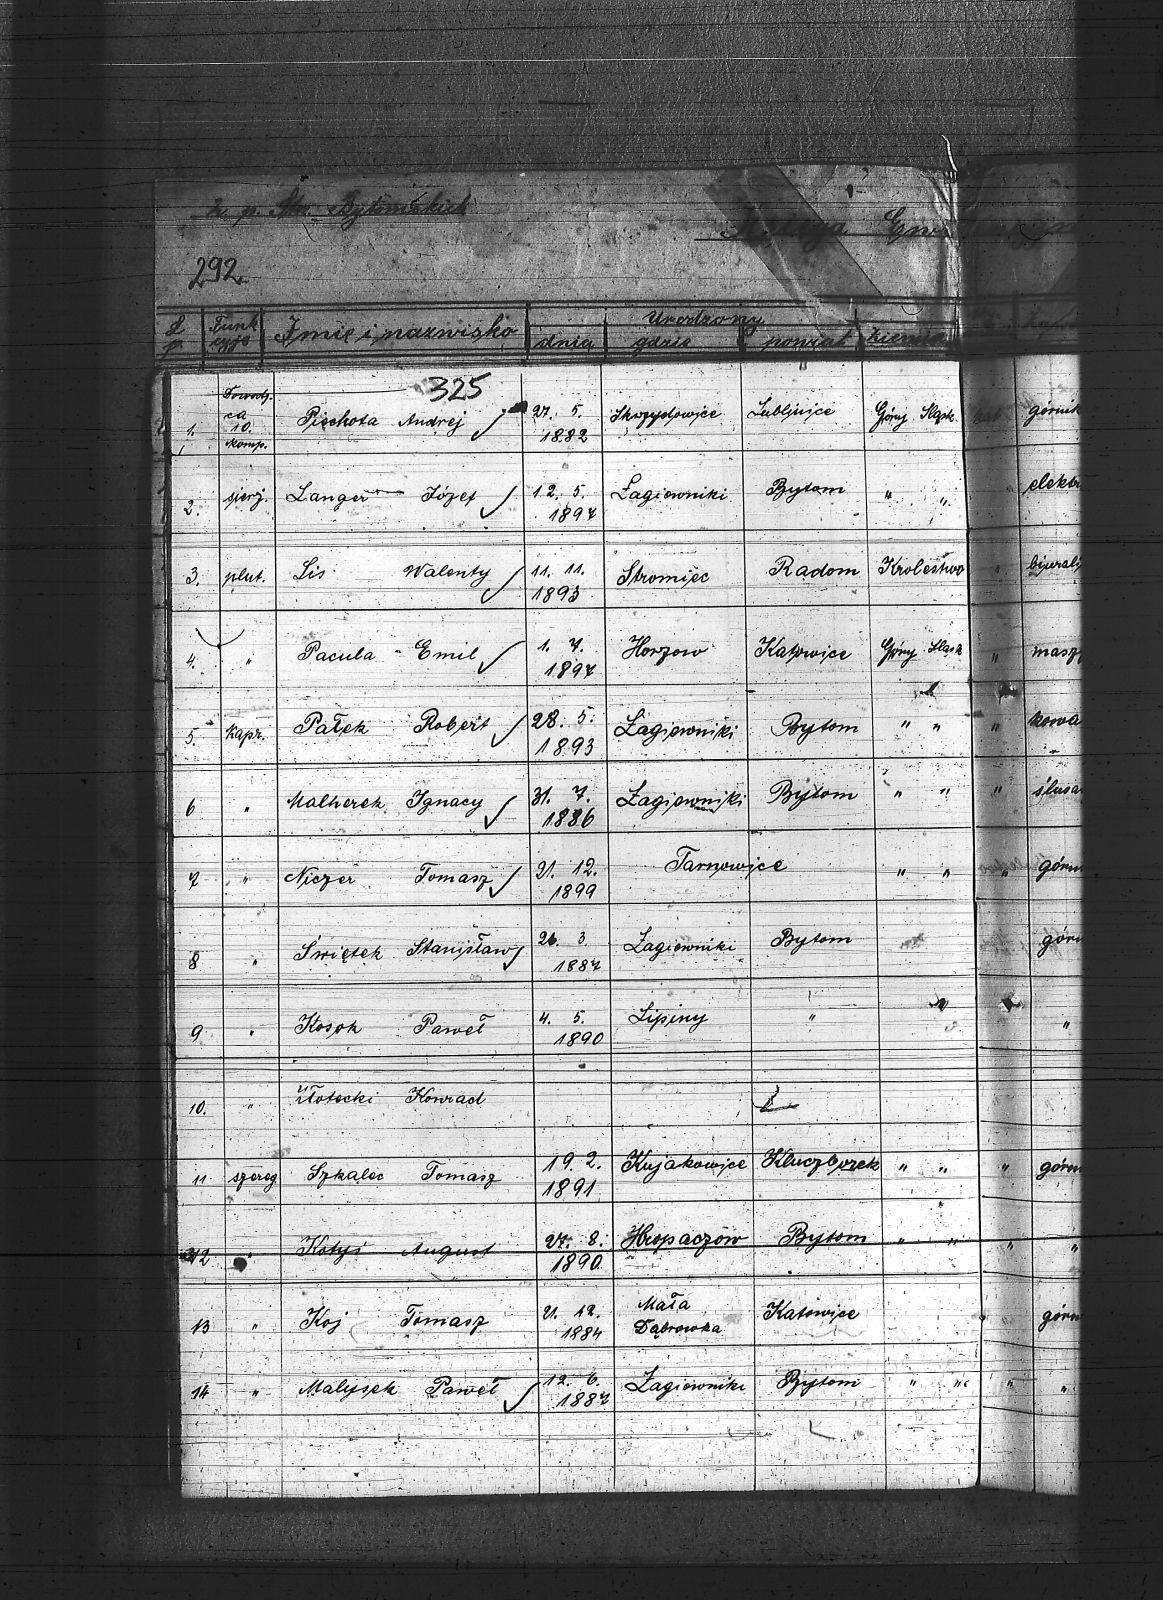 2 p. Str. Bytomskich
Księga
292
L. p. Funkcyja Imię i nazwisko Urodzony
dnia gdzie powiat ziemia
325
Dowódz.
ca
10.
komp.
1. Piechota Andrej 27. 5. 1882 Skrzydłowice Lubliniec Górny Śląsk górnik
2. sierż. Langer Józef 12. 5. 1897 Łagiewniki Bytom " " elektr
3. plut. Lis Walenty 11. 11. 1893 Stromiec Radom Krolestwo " biurali
4. " Pacula Emil 1. 7. 1897 Horzow Katowice Górny Śląsk " masz
5. kapr. Pałek Robert 28. 5. 1893 Łagiewniki Bytom " " " kowa
6 " Malherek Ignacy 31. 7. 1886 Łagiewniki Bytom " " " ślusa
7 " Niczer Tomasz 21. 12. 1899 Tarnowice " " " górn
8 " Świętek Stanisław 26. 3. 1887 Łagiewniki Bytom górn
9 " Kosok Paweł 4. 5. 1890 Lipiny " "
10. " Złotecki Konrad
11 szereg Szkalec Tomasz 19. 2. 1891 Kujakowice Kluczborek " " " górn
12 " Kotyś August 27. 8. 1890 Hropaczów Bytom " " " "
13 " Koj Tomasz 21. 12. 1884 Mała Dąbrowka Katowice górn
14 " Malysek Paweł 12. 6. 1887 Łagiewniki Bytom " " " "